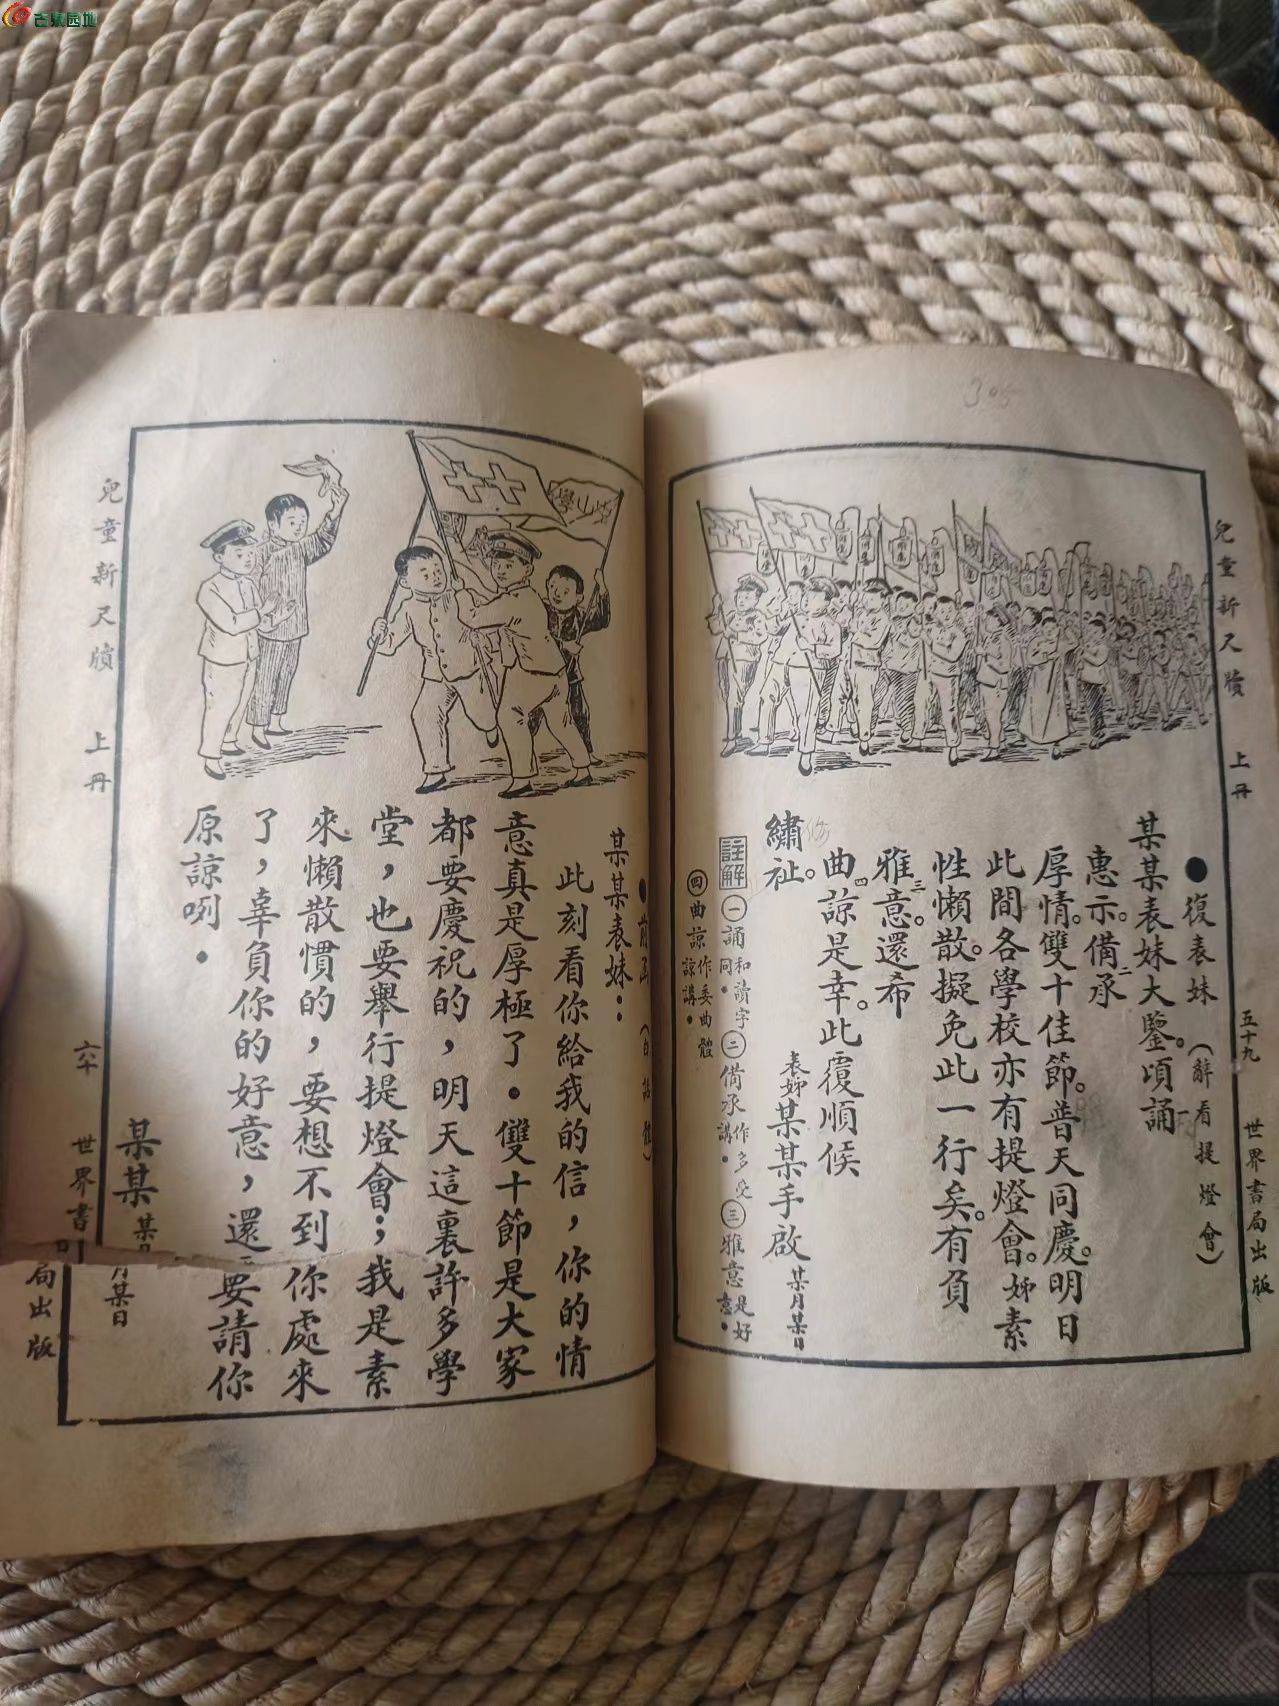 古泉园地
兒童新尺牘 上册 五十九 世界書局出版
●復表妹(辭看提燈會)
某某表妹大鑒。頃誦一
惠示。備承二
厚情。雙十佳節。普天同慶。明日
此間各學校亦有提燈會。姊素
性懶散。擬免此一行矣。有負
雅意。三還希
曲四諒是幸。此覆順候
繡祉。 表姊某某手啟 某月某日
註解 ㊀誦和讀字同。㊁備承作多受講。㊂雅意是好意。
㊃曲諒作委曲體諒講。
●前函(白話體)
某某表妹：
此刻看你給我的信，你的情
意真是厚極了。雙十節是大家
都要慶祝的，明天這裏許多學
堂，也要舉行提燈會；我是素
來懶散慣的，要想不到你處來
了，辜負你的好意，還要請你
原諒咧。
某某 某月某日
兒童新尺牘 上册 六十 世界書局出版